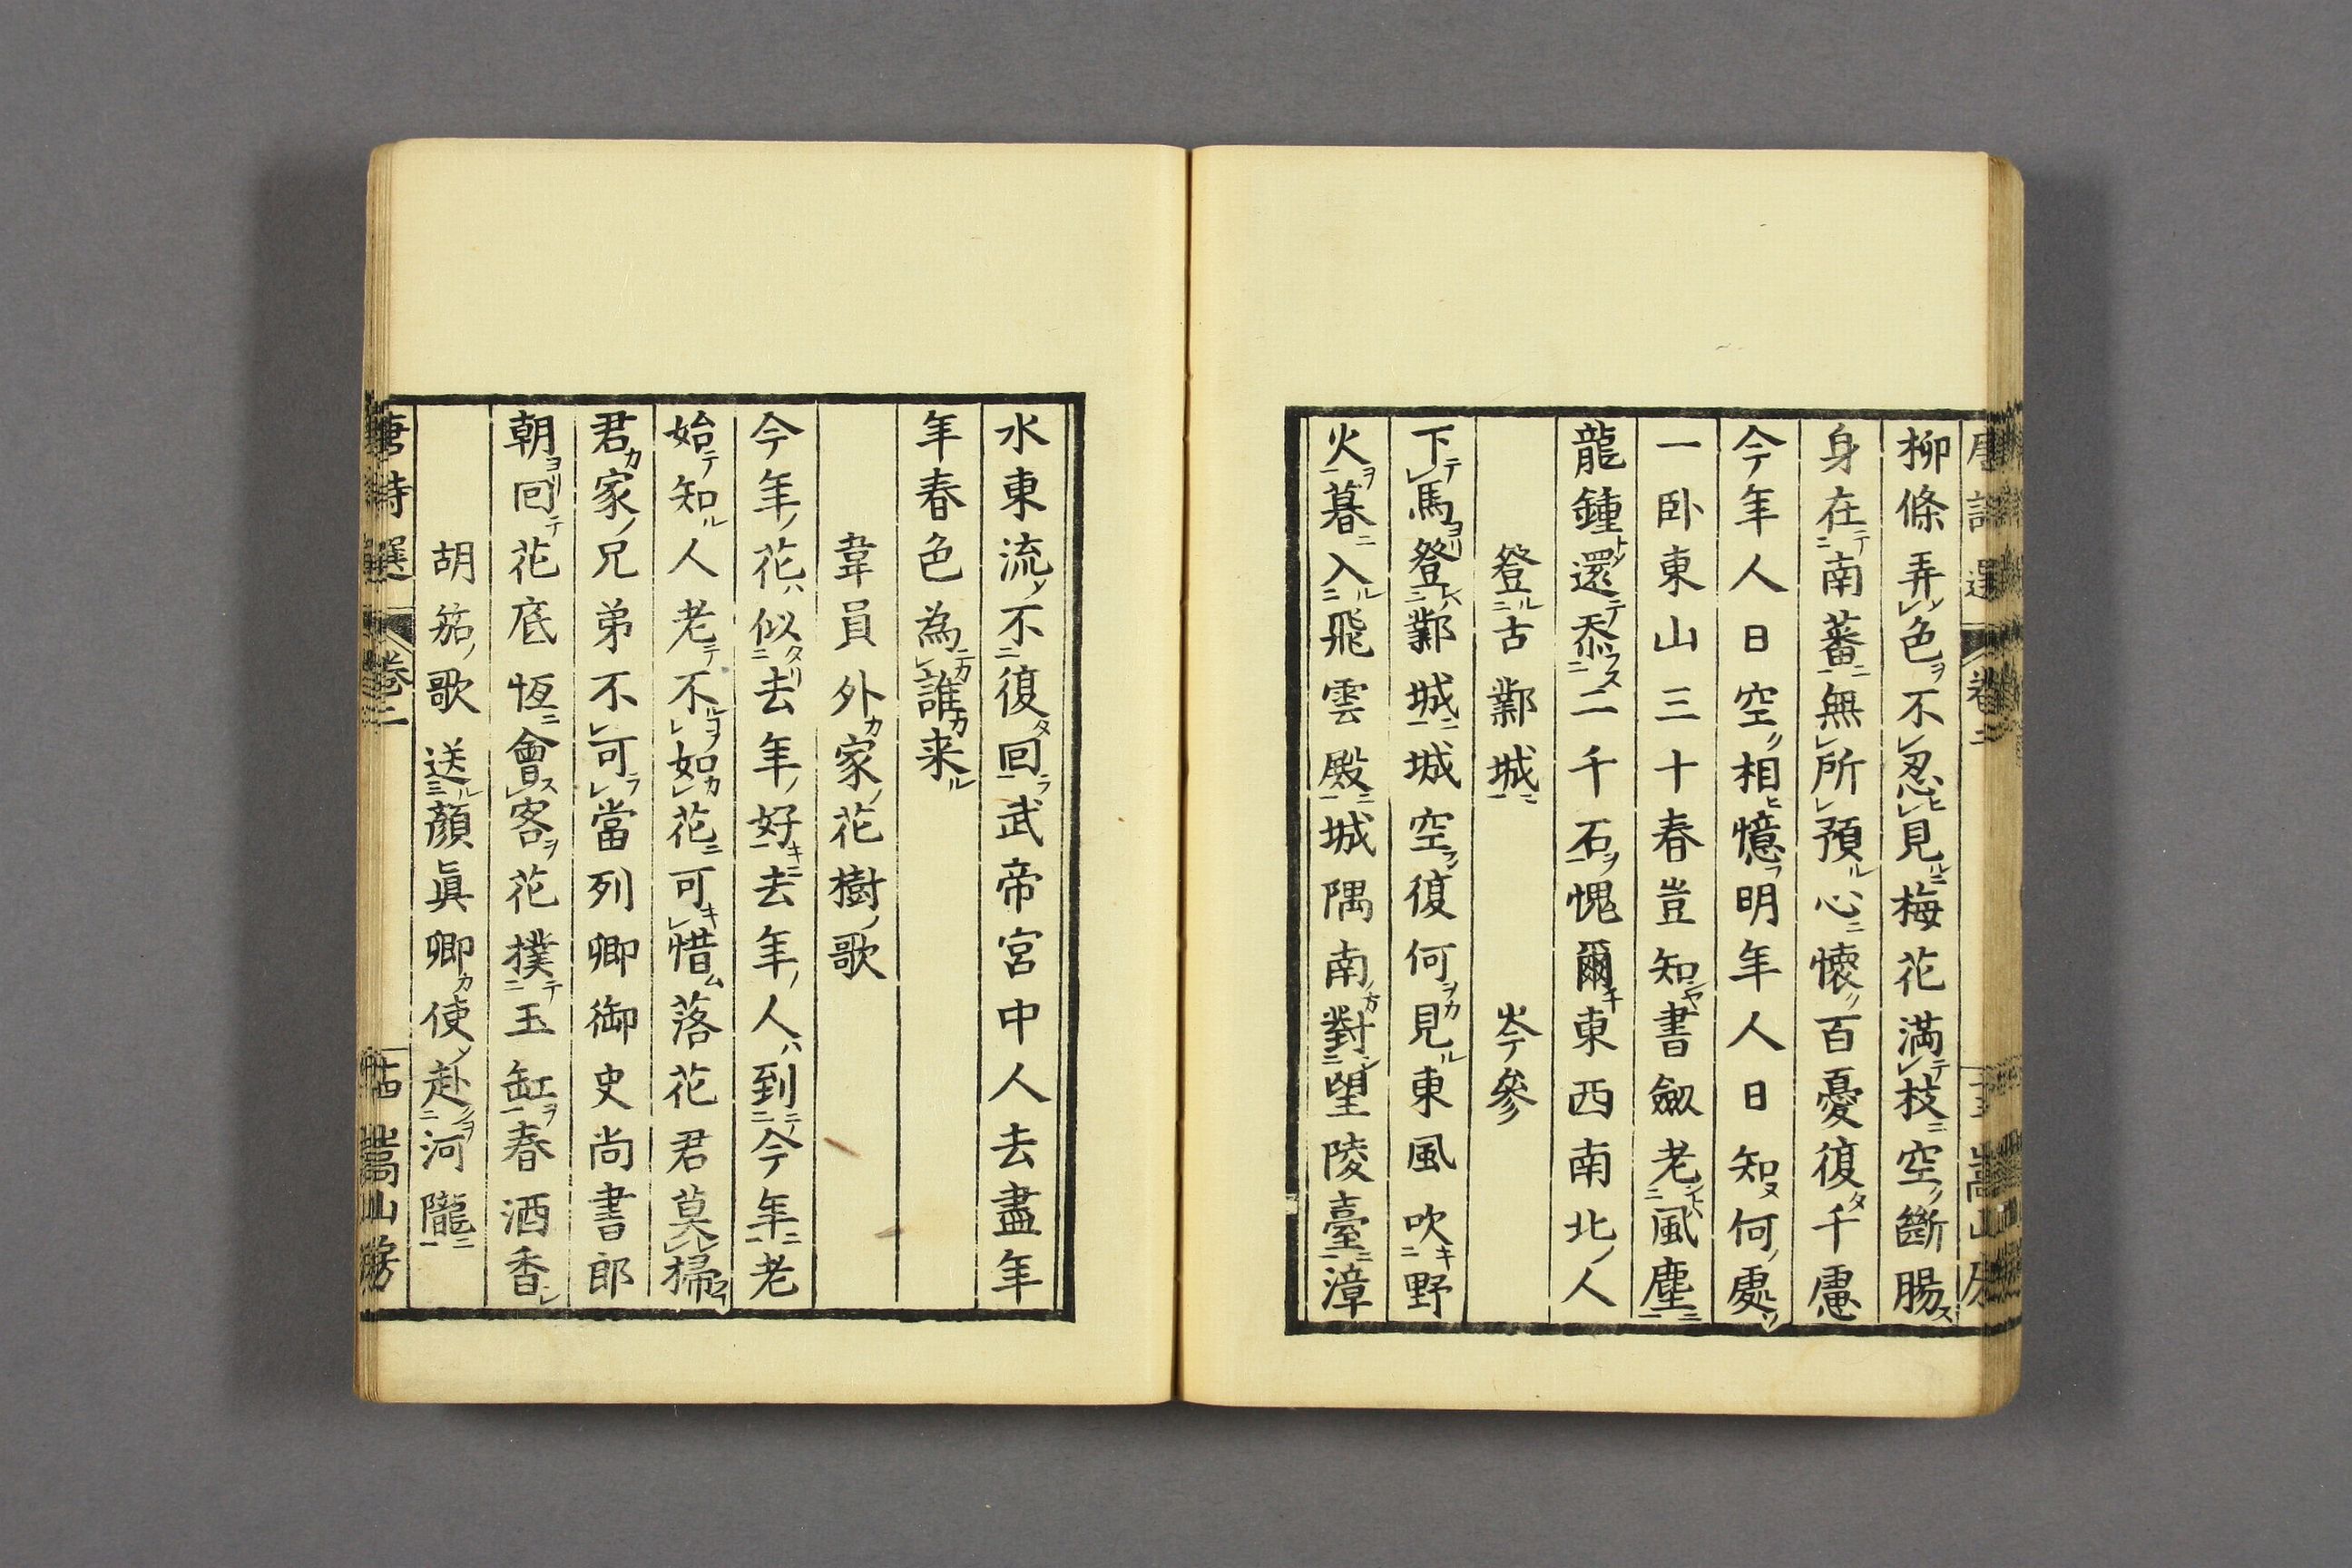 柳條弄色不忍見梅花滿枝空斷腸
身在南蕃無所預心懷百憂復千慮
今年人日空相憶明年人日知何處
一臥東山三十春豈知書劔老風塵
龍鍾還忝二千石愧爾東西南北人
登古鄴城 岑參
下馬登鄴城城空復何見東風吹野
火暮入飛雲殿城隅南對望陵臺漳
水東流不復回武帝宮中人去盡年
年春色為誰来
韋員外家花樹歌
今年花似去年好去年人到今年老
始知人老不如花可惜落花君莫掃
君家兄弟不可當列卿御史尚書郎
朝回花底恆會客花撲玉缸春酒香
胡笳歌送顏眞卿使赴河隴
唐詩選 卷二 十四 嵩山房